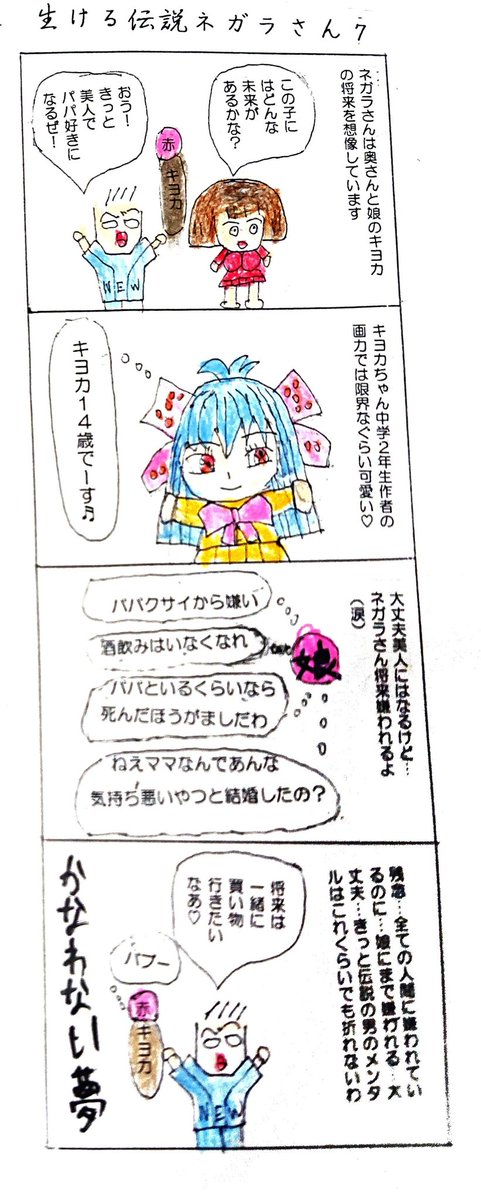 生ける伝説ネガラさん7
ネガラさんは奥さんと娘のキヨカ
の将来を想像しています
この子に
はどんな
未来が
あるかな?
赤
キヨカ
おう!
きっと
美人で
パパ好きに
なるぜ!
NEW
キヨカちゃん中学2年生作者の
画力では限界なぐらい可愛い♡
キヨカ14歳でーす♬
大丈夫美人にはなるけど…
ネガラさん将来嫌われるよ
(涙)
娘
パパクサイから嫌い
酒飲みはいなくなれ
パパといるくらいなら
死んだほうがましだわ
ねえママなんであんな
気持ち悪いやつと結婚したの?
残念…全ての人間に嫌われてい
るのに…娘にまで嫌われる…大
丈夫…きっと伝説の男のメンタ
ルはこれくらいでも折れないわ
将来は
一緒に
買い物
行きたい
なあ♡
バブー
赤
キヨカ
NEW
かなわない夢